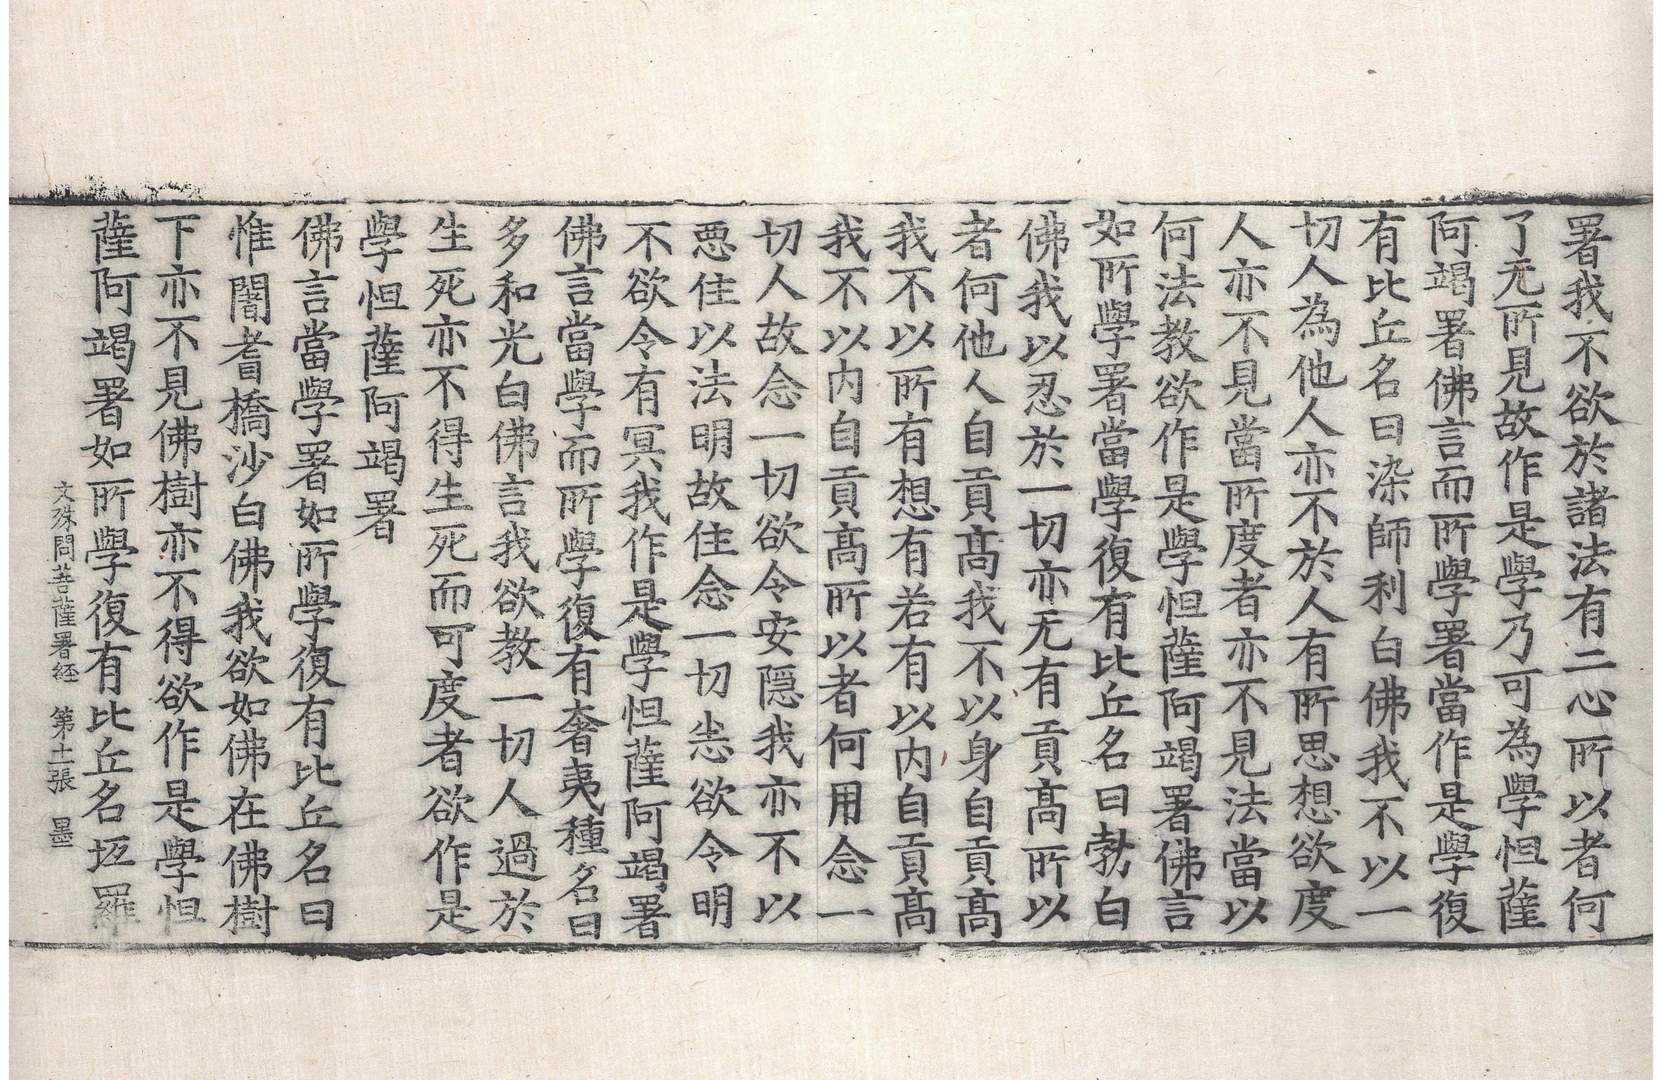 署我不欲於諸法有二心所以者何
了无所見故作是學乃可為學怛薩
阿竭署佛言而所學署當作是學復
有比丘名曰染師利白佛我不以一
切人為他人亦不於人有所思想欲度
人亦不見當所度者亦不見法當以
何法教欲作是學怛薩阿竭署佛言
如所學署當學復有比丘名曰勃白
佛我以忍於一切亦无有貢髙所以
者何他人自貢髙我不以身自貢髙
我不以所有想有若有以内自貢髙
我不以内自貢髙所以者何用念一
切人故念一切欲令安隠我亦不以
惡住以法明故住念一切恙欲令明
不欲令有冥我作是學怛薩阿竭署
佛言當學而所學復有奢夷種名曰
多和光白佛言我欲教一切人過於
生死亦不得生死而可度者欲作是
學怛薩阿竭署
佛言當學署如所學復有比丘名曰
惟闍耆橋沙白佛我欲如佛在佛樹
下亦不見佛樹亦不得欲作是學怛
薩阿竭署如所學復有比丘名坻羅
文殊問菩薩署経 第十一張 墨